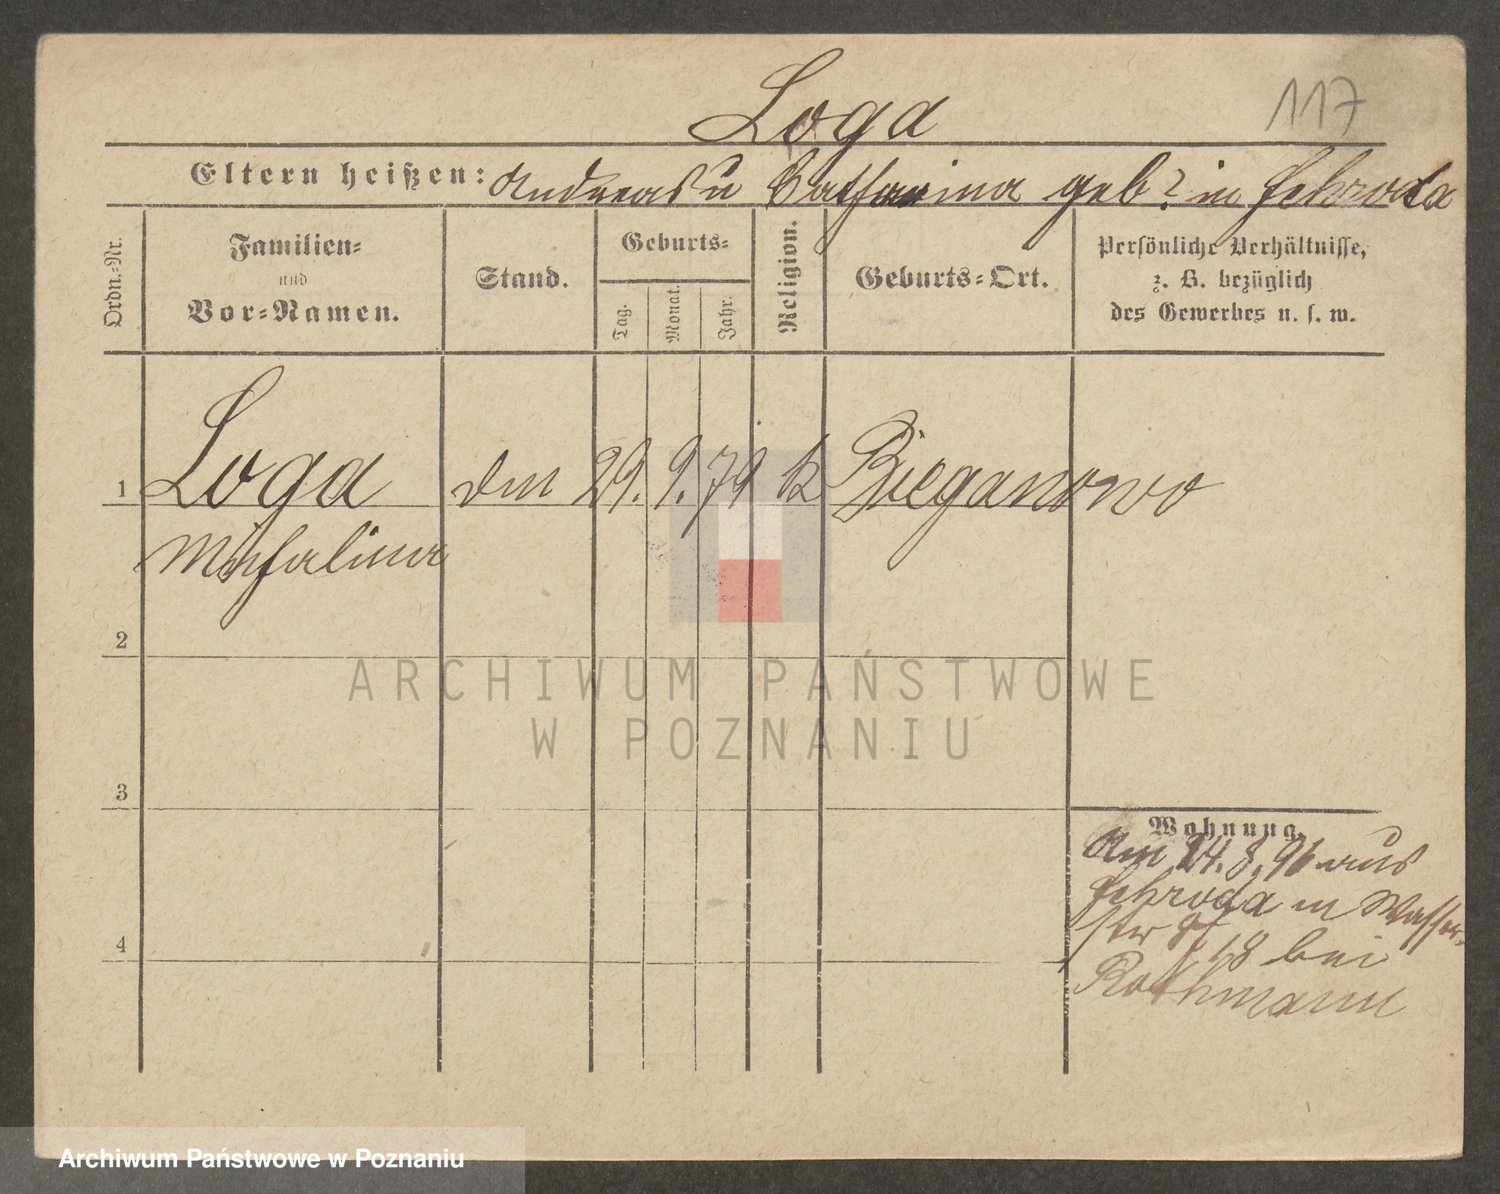 Loga
117
Eltern heißen: Andreas u Catharina geb? in Schroda
Ordn.=Nr.
Familien=
und
Vor=Namen.
Stand.
Geburts=
Tag.
Monat.
Jahr.
Religion.
Geburts=Ort.
Persönliche Verhältnisse,
z. B. bezüglich
des Gewerbes u. s. w.
1 Loga 29. 9. 79 k Bieganowo
Michalina
2
3
4
Wohnung.
Am 24. 8. 96 aus
Schroda in Wasser-
str
18 bei
Rothmann
ARCHIWUM PAŃSTWOWE
W POZNANIU
Archiwum Państwowe w Poznaniu